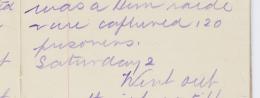 was a Hun raide
we captured 120
prisoners.
Saturday 2
Went out